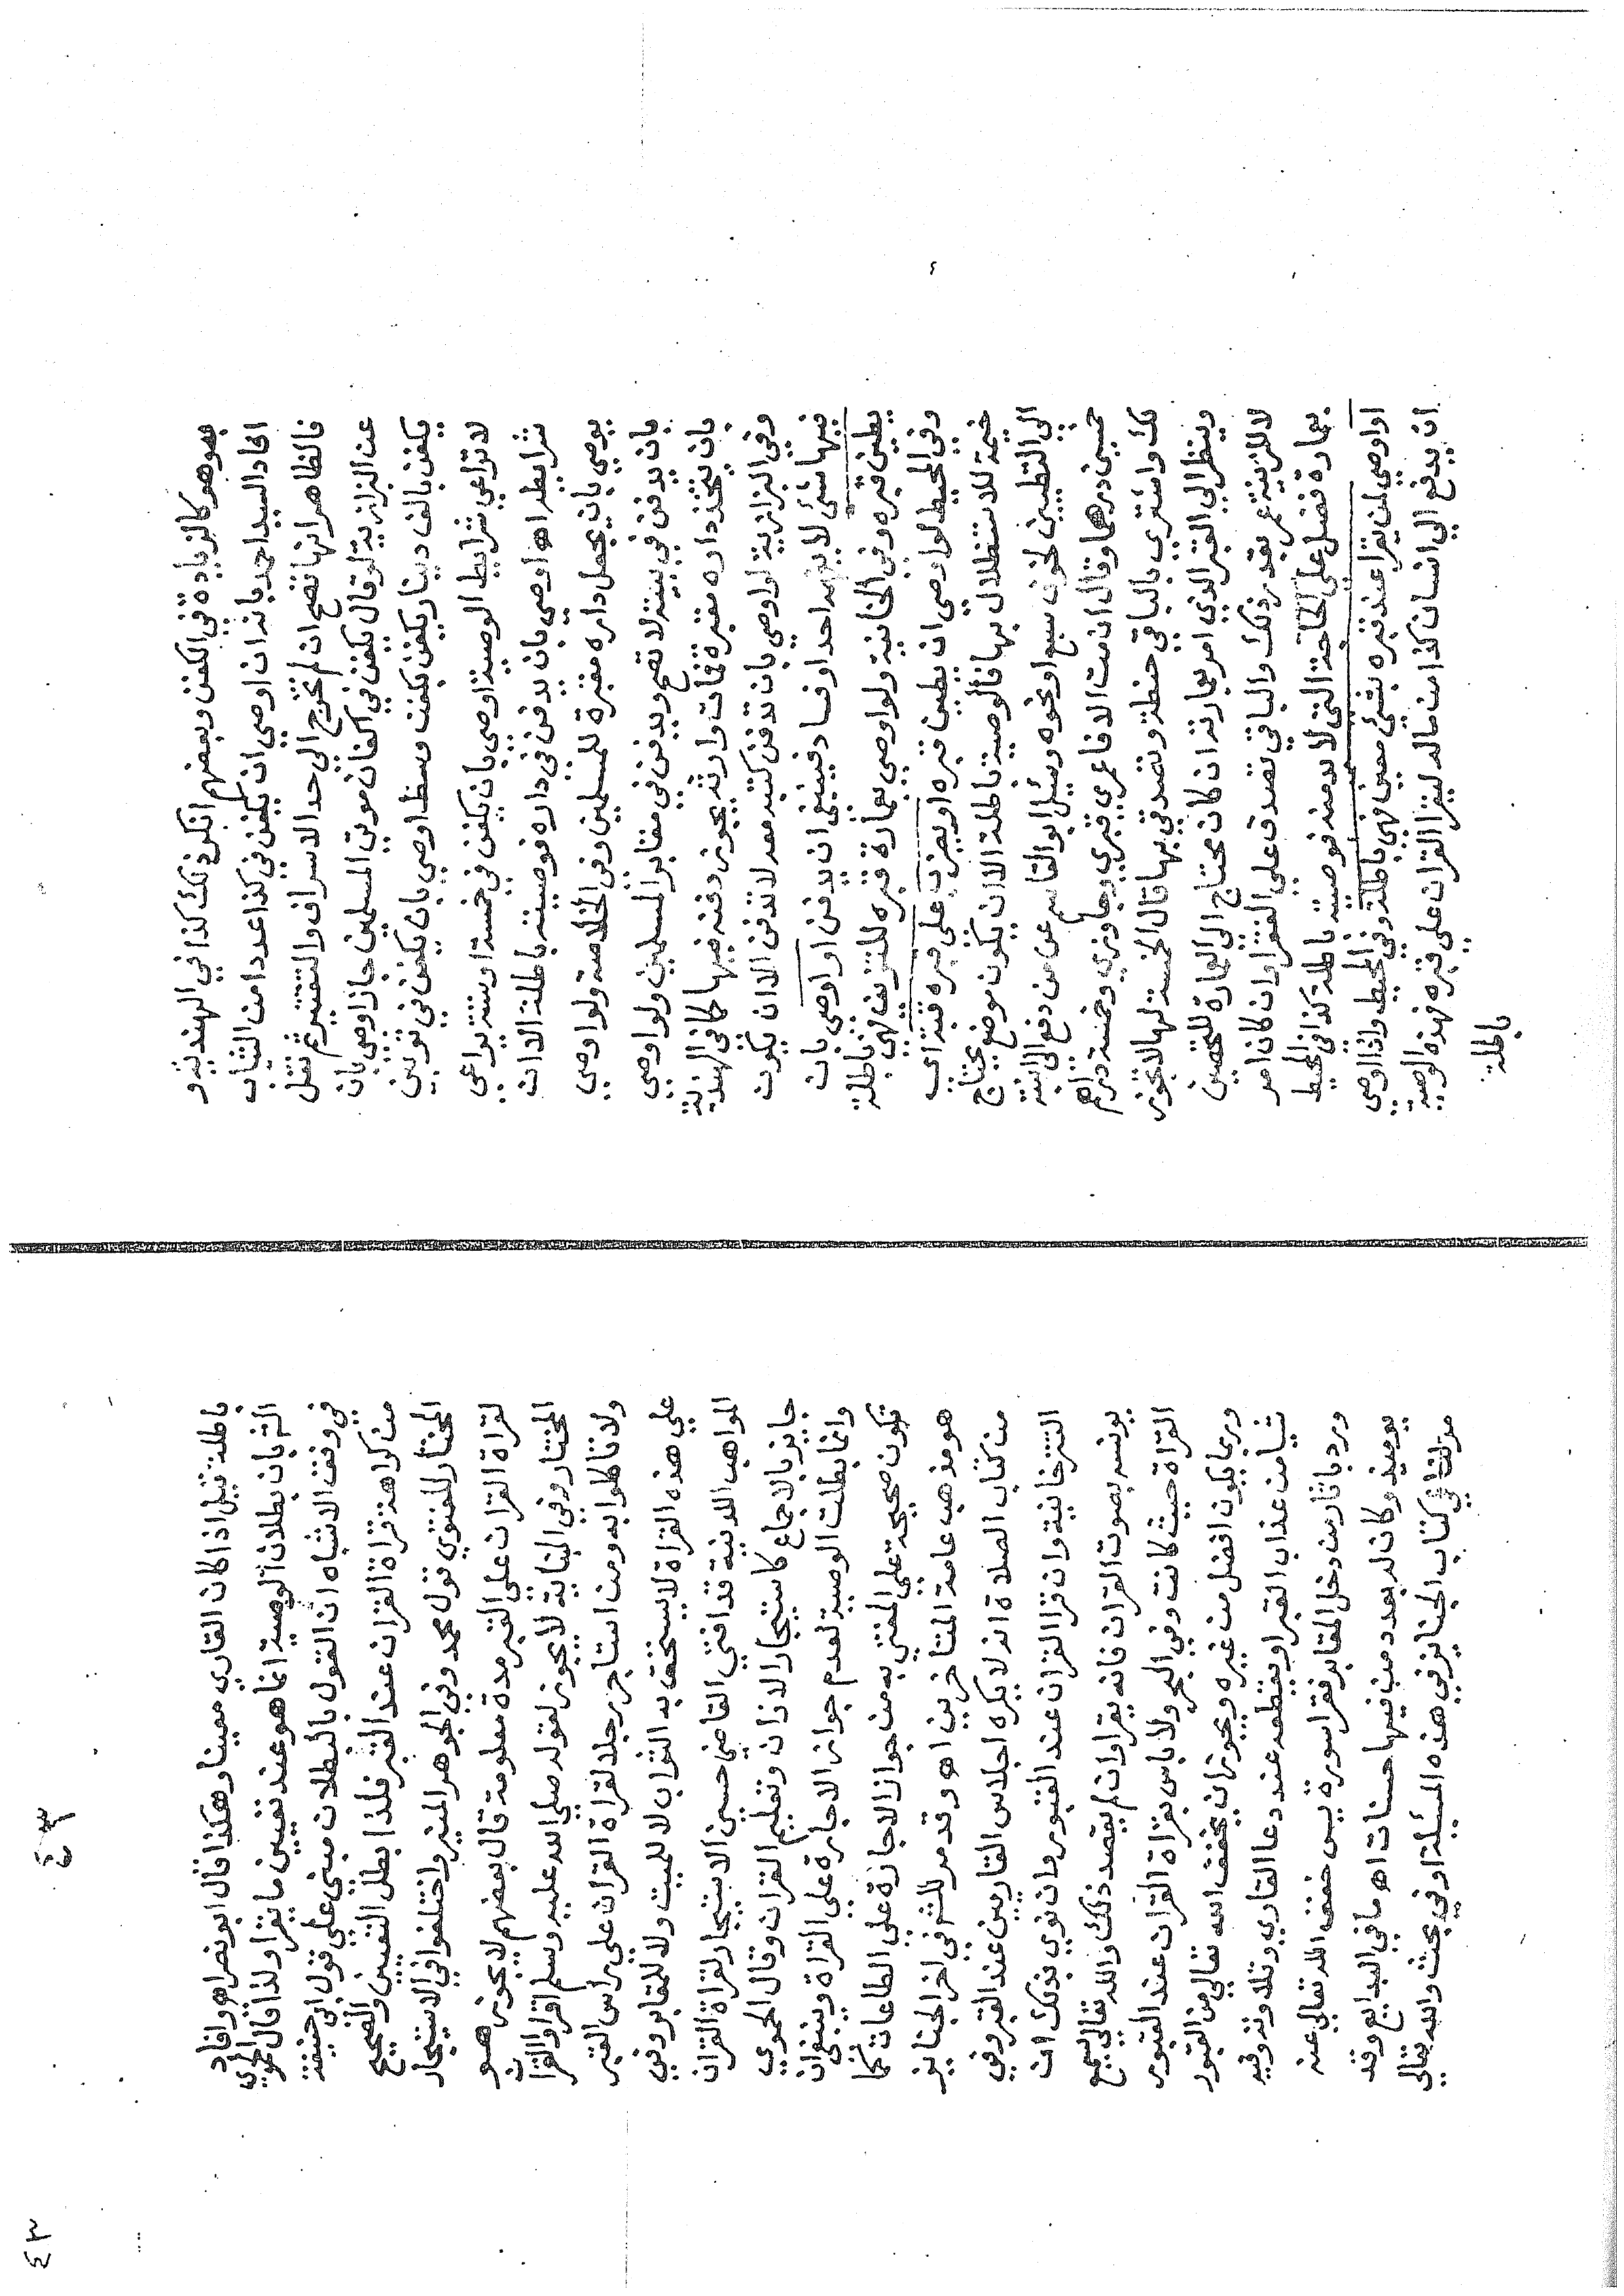 بعو وهو كالزيادة في الكفن وبعضهم انكر ذلك كذا في الهندية و
افاد السيد احمد بانه ان اوصي ان يكفن في كذا عددا من الثياب
فالظاهر انها تصح ان لم تخرج الي حد الاسراف والتقتير ثم نقل
عن البزازية لو قال يكفن في اكفان موتي المسلمين جاز اوصي بان
يكفن بالف دينار يكفن بكفن وسط اوصي بان يكفن في ثوبين
لا تراعي شرايط الوصية اوصي بان يكفن في خمسة او ستة يراعي
شرايطه اه اوصي بان يدفن في داره فوصيته باطلة الا ان
يوصي بان يجعل داره مقبرة للمسلمين وفي الخلاصة ولو اوصي
بان يدفن في بيته لا تصح ويدفن في مقابر المسلمين ولو اوصي
بان يتخذ داره مقبرة فمات وارثه يجوز دفنه فيها كما في الهندية
وفي البزازية لو اوصي بان تدفن كتبه معه لا تدفن الا ان يكون
فيها شئ لا يفهمه احد او فساد فينبغي ان يدفن او اوصي بان
يطين قبره وفي الخانية ولو اوصي بعمارة قبره للتزين فهي باطلة
وفي المحيط لو اوصي ان يطين قبره او يضرب علي قبره قبة اي
خيمة للاستظلال بها فالوصية باطلة الا ان يكون موضع يحتاج
الي التطيين لخوف سبع او نحوه وسئل ابو القاسم عن من دفع الي ابنته
خمسين درهما وقال ان مت الا فاعمري قبري وجاوزي وخمسة دراهم
لك واشتري بالباقي حنطة وتصدقي بها قال الخمسة لها لا تجوز
وينظر الي القبر الذي امر بعمارته ان كان يحتاج الي العمارة للتحصين
لا للزينة عمر بقدر ذلك والباقي تصدق علي الفقرا وان كان امر
بعمارة فضل علي الحاجة التي لا بد منه فوصيته باطلة كذا في المحيط
او اوصي لمن يقرا عند قبره بشئ معين فهي باطلة وفي المحيط واذا اوصي
ان يدفع الي انسان كذا من ماله ليقرا القران علي قبره فهذه الوصية
باطلة
باطلة قيل اذا كان القاري معينا وهكذا قال ابو نصر اه وافاد
الثم بان بطلان الوصية انما هو عند تعيين ما يقرا ولذا قال الحموي
في وقف الاشباه ان القول بالبطلان مبني علي قول ابي حنيفة
من كراهة قراة القران عند القبر فلذا بطل التعيين والصحيح
المختار للفتوي قول محمد وفي الجوهر المنير واختلفوا في الاستيجار
لقراة القران علي القبر مدة معلومة قال بعضهم لا يجوز هو
المختار وفي البناية لا يجوز لقوله صلي الله عليه وسلم اقراوا القران
ولا تاكلوا به ومن استاجر رجلا لقراة القران علي راس القبر
علي هذه القراة لا يستحق به الثواب لا للميت ولا للمقابر وفي
المواهب اللدنية قد افتي القاضي حسين الاستيجار لقراة القران
جايز بالاجماع كاستيجار الاذان وتعليم القران وقال الحموي
وانما بطلت الوصية لعدم جواز الاجارة علي القراة وينبغي ان
تكون صحيحة علي المفتي به من جواز الاجارة علي الطاعات كما
هو مذهب عامة المتاخرين اه وقد مر للشر في اخر الجنايز
من كتاب الصلاة انه لا يكره اجلاس القارين عند القبر وفي
التتر خانية وان قرا القران عند القبور وان نوي بذلك ان
يونسه بصوت القران فانه يقرا وان لم يقصد ذلك والله تعالي يسمع
القراة حيث كانت وفي البحر ولا باس بقراة القران عند القبور
وربما يكون افضل من غيره ويجوز ان يخفف الله تعالي من القبور
شيا من عذاب القبر او يقطعه عند دعا القاري وتلاوته وفيه
ورد باثار من دخل المقابر فقرا سورة يس خفف الله تعالي عنه
يوميذ وكان له بعدد من فيها حسنات اه ما في البدايع وقد
مر للش في كتاب الجنايز في هذه المسئلة اوفي بحث والله تعالي
٤٣
٤٣